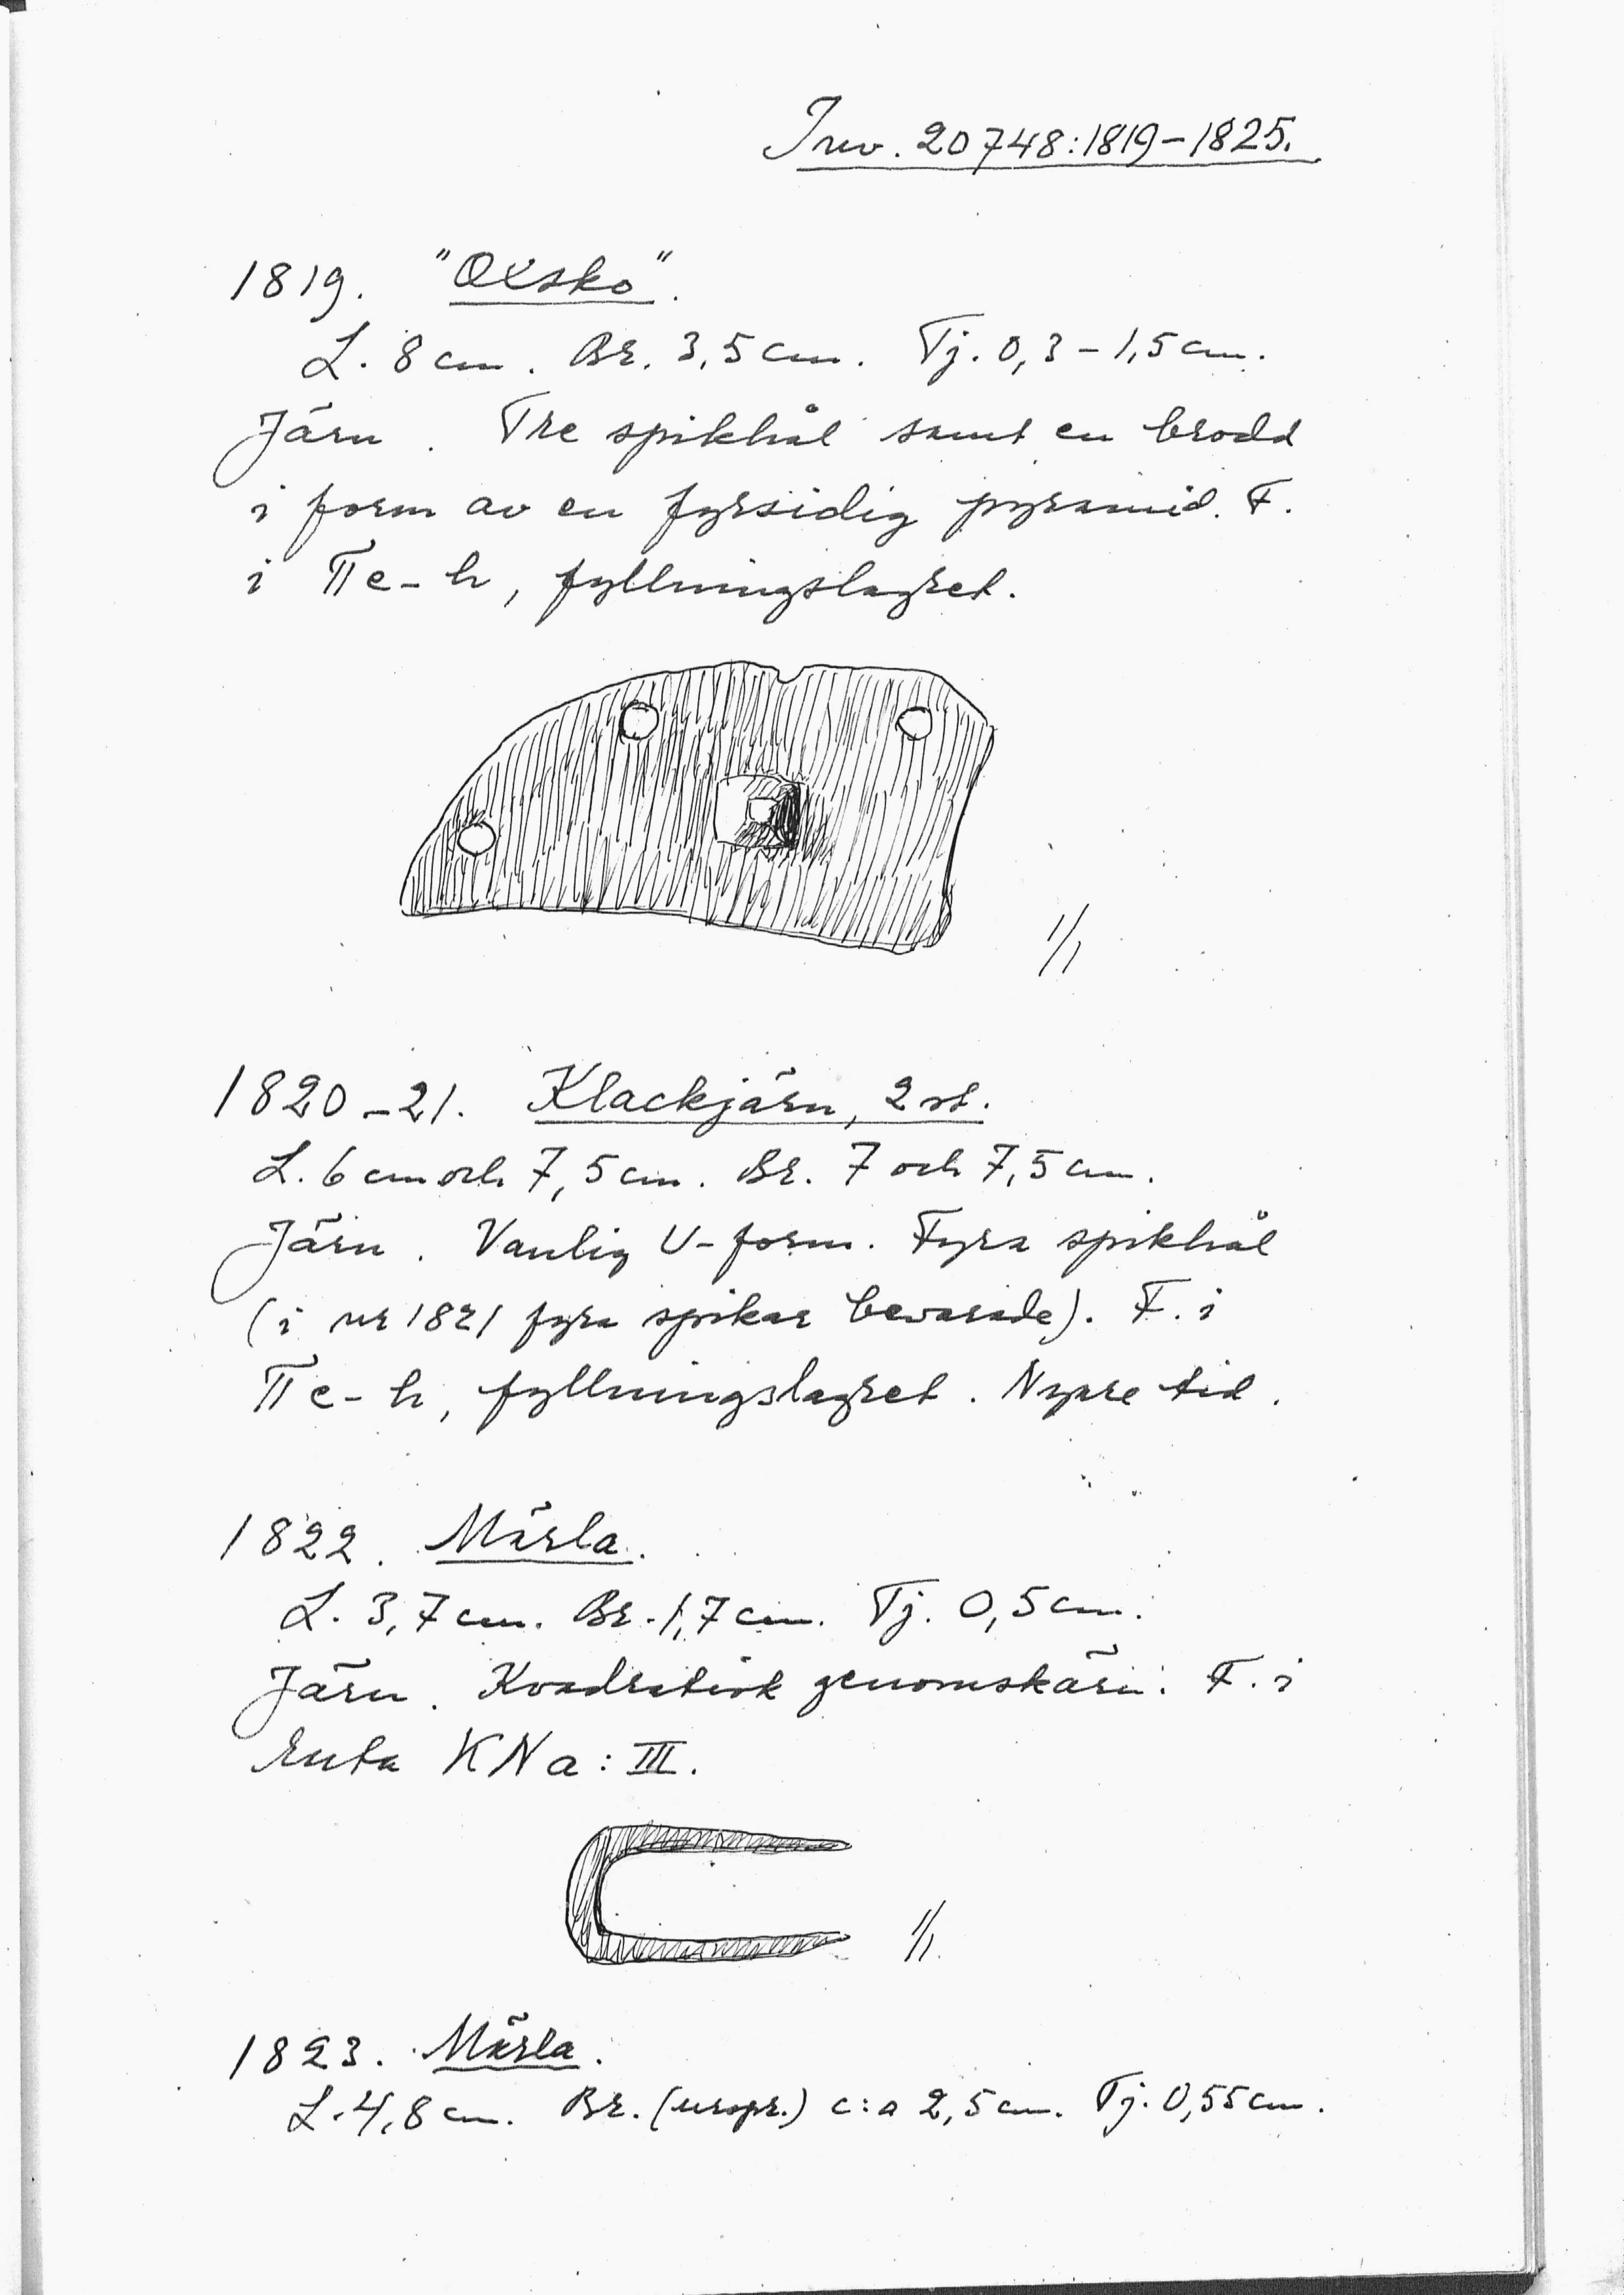 Inv. 20748:1819-1825.
1819. "Oxsko".
L. 8 cm. Br. 3,5 cm. Tj. 0,3 - 1,5 cm.
Järn. Tre spikhål samt en brodd
i form av en fyrsidig pyramid. F.
i II e-h, fyllningslagret.
1/1
1820-21. Klackjärn, 2 st.
L. 6 cm och 7,5 cm. Br. 7 och 7,5 cm.
Järn. Vanlig U-form. Fyra spikhål
(i nr 1821 fyra spikar bevarade). F. i
II e-h, fyllningslagret. Nyare tid.
1822. Märla.
L. 3,7 cm. Br. 1,7 cm. Tj. 0,5 cm.
Järn. Kvadratisk genomskärn. F. i
ruta KNa: III.
1/1.
1823. Märla.
L. 4,8 cm. Br. (urspr.) c:a 2,5 cm. Tj. 0,55 cm.